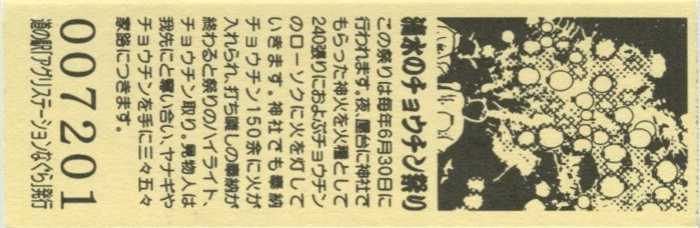 清水のチョウチン祭り
この祭りは毎年6月30日に
行われます。夜、屋台に神社で
もらった神火を火種として
240張りにおよぶチョウチン
のローソクに火を灯して
いきます。神社でも奉納
チョウチン150余に火が
入れられ、打ち囃しの奉納が
終わると祭りのハイライト、
チョウチン取り。見物人は
我先にと奪い合い、ヤナギや
チョウチンを手に三々五々
家路につきます。
007201
道の駅「アグリステーションなぐら」発行